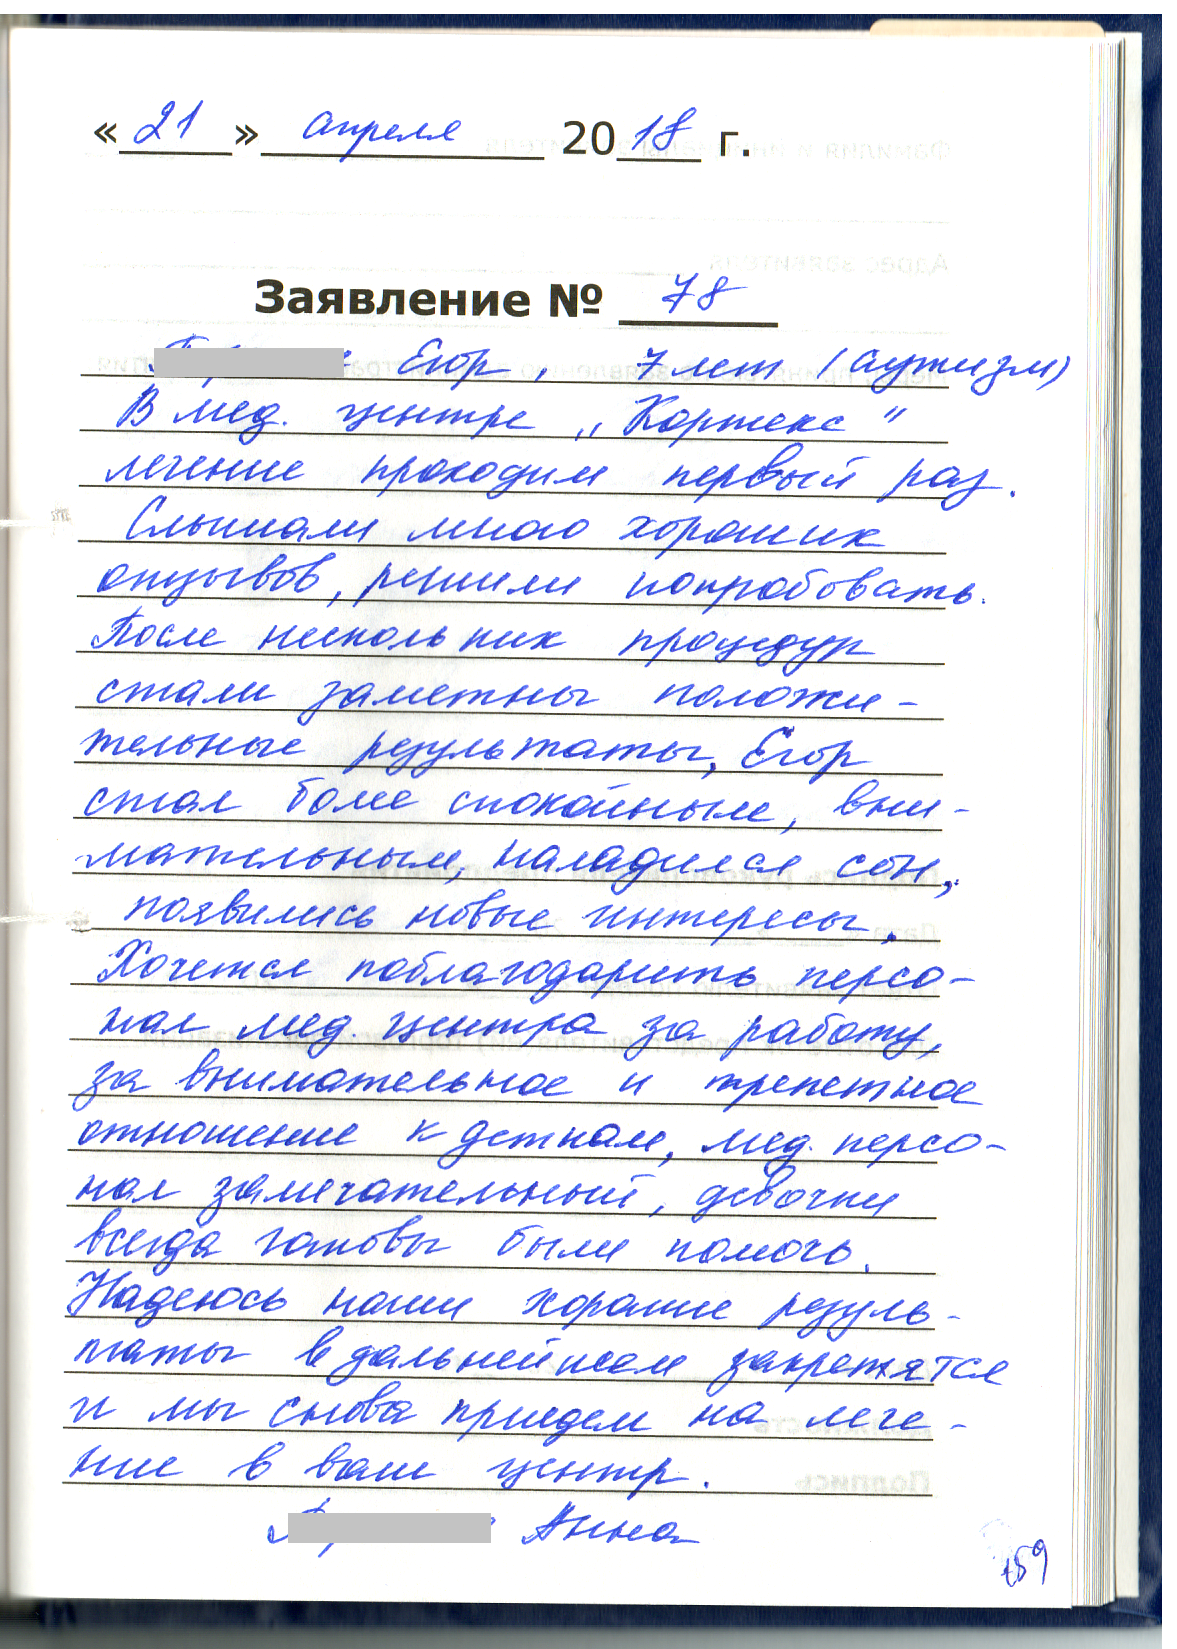 «21» апреля 2018 г.
Заявление № 78
Егор, 7 лет (аутизм)
В мед. центре „Кортекс"
лечение проходим первый раз.
Слышали много хороших
отзывов, решили попробовать.
После нескольких процедур
стали заметны положи-
тельные результаты, Егор
стал более спокойным, вни-
мательным, наладился сон,
появились новые интересы.
Хочется поблагодарить персо-
нал мед. центра за работу,
за внимательное и трепетное
отношение к деткам, мед. персо-
нал замечательный, девочки
всегда готовы были помочь.
Надеюсь наши хорошие резуль-
таты в дальнейшем закрепятся
и мы снова приедем на лече-
ние в ваш центр.
Анна
159